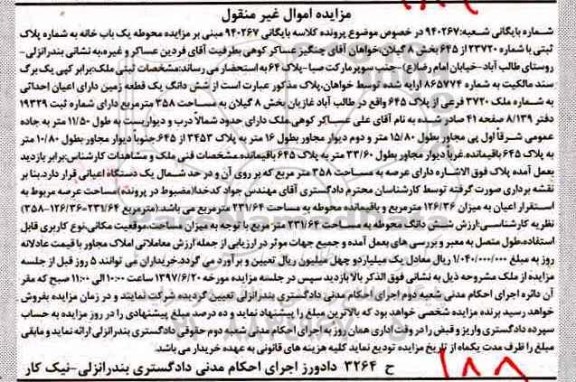 مزایده اموال غیر منقول
شماره بایگانی شعبه:۹۴۰۲۶۷ در خصوص موضوع پرونده کلاسه بایگانی ۹۴۰۲۶۷ مبنی بر مزایده محوطه یک باب خانه به شماره پلاک
ثبتی با شماره ۲۳۷۲۰ از ۶۴۵ بخش ۸ گیلان،خواهان آقای چنگیز عساکر کوهی بطرفیت آقای فردین عساکر و غیره،به نشانی بندرانزلی-
روستای طالب آباد-خیابان امام رضا(ع)-جنب سوپرمارکت صبا-پلاک ۶۴ به استحضار می رساند:مشخصات ثبتی ملک:برابر کپی یک برگ
سند مالکیت به شماره ۸۶۵۷۷۴ ارایه شده توسط خواهان،پلاک مذکور عبارت است از شش دانگ یک قطعه زمین دارای اعیان احداثی
به شماره ملک ۳۷۲۰ فرعی از پلاک ۶۴۵ واقع در طالب آباد غازیان بخش ۸ گیلان به مساحت ۳۵۸ مترمربع دارای شماره ثبت ۱۹۳۲۹
دفتر ۸/۱۳۹ صفحه ۴۱ صادر شده به نام آقای علی عساکر کوهی.ملک دارای حدود شمالاً درب و دیواریست به طول ۱۱/۵۰ متر به جاده
عمومی شرقاً اول پی مجاور بطول ۱۵/۸۰ متر و دوم دیوار مجاور بطول ۱۶ متر به پلاک ۳۴۵۳ از ۶۴۵.جنوباً دیوار مجاور بطول ۱۰/۸۰ متر
به پلاک ۶۴۵ باقیمانده.غرباً دیوار مجاور بطول ۳۳/۶۰ متر به پلاک ۶۴۵ باقیمانده مشخصات فنی ملک و مشاهدات کارشناس:برابر بازدید
بعمل آمده پلاک فوق الاشاره دارای عرصه به مساحت ۳۵۸ متر مربع که بر روی آن و در حد شمال یک دستگاه اعیانی قرار دارد.بنا بر
نقشه برداری صورت گرفته توسط کارشناسان محترم دادگستری آقای مهندس جواد کدخدا(مضبوط در پرونده) مساحت عرصه مربوط به
استقرار اعیان به میزان ۱۲۶/۳۶ مترمربع و باقیمانده محوطه به مساحت ۲۳۱/۶۴ مترمربع می باشد.(مترمربع ۲۳۱/۶۴=۱۲۶/۳۶-۳۵۸)
نظریه کارشناسی:ارزش شش دانگ محوطه به مساحت ۲۳۱/۶۴ متر مربع با توجه به میزان مساحت،موقعیت مکانی،نوع کاربری قابل
استفاده،طول متصل به معبر و بررسی های بعمل آمده و جمیع جهات موثر در ارزیابی از جمله ارزش معاملاتی املاک مجاور با قیمت عادلانه
روز به مبلغ ۱/۰۴۰/۰۰۰/۰۰۰ ریال معادل یک میلیاردو چهل میلیون ریال تعیین و برآورد می گردد.خریداران می توانند ۵ روز قبل از جلسه
مزایده از ملک مشروحه ذیل به نشانی فوق الذکر بالا بازدید سپس در جلسه مزایده مورخه ۱۳۹۷/۶/۲۰ ساعت ۱۰:۰۰ الی ۱۱:۰۰ صبح که مقر
آن دائره اجرای احکام مدنی شعبه دوم اجرای احکام مدنی دادگستری بندرانزلی تعیین گردیده شرکت نمایند و در زمان مزایده بفروش
خواهد رسید برنده مزایده شخصی خواهد بود که بالاترین مبلغ را پیشنهاد نماید و ده درصد مبلغ پیشنهادی را در روز مزایده به حساب
سپرده دادگستری واریز و قبض را در وقت اداری همان روز به اجرای احکام مدنی شعبه دوم حقوقی دادگستری بندرانزلی ارائه نماید و مابقی
مبلغ را ظرف مدت یکماه از تاریخ مزایده تودیع نماید کلیه هزینه های قانونی به عهده خریدار می باشد.
ح ۳۲۶۴ دادورز اجرای احکام مدنی دادگستری بندرانزلی-نیک کار
۱۸۸